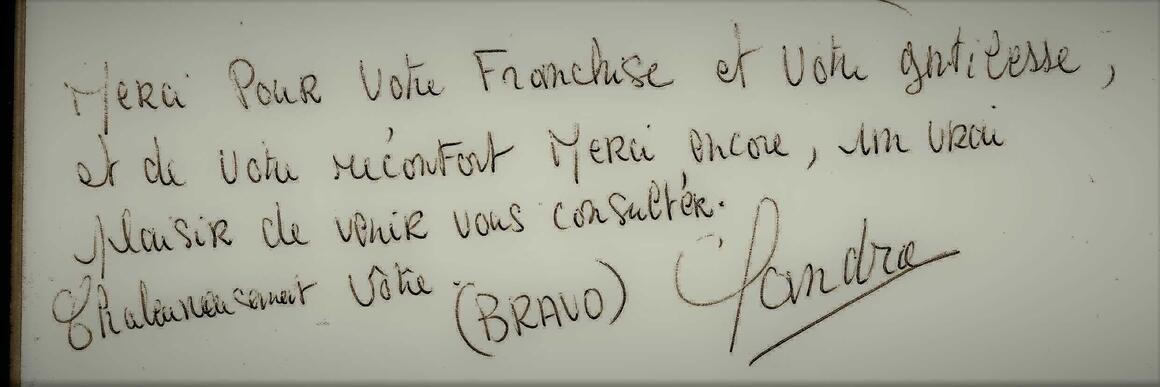 Merci Pour Votre Franchise et Votre gntilesse,
et de Votre réconfort Merci encore, un vrai
plaisir de venir vous consultér.
Chaleureusement Vôtre.
(BRAVO) Sandra